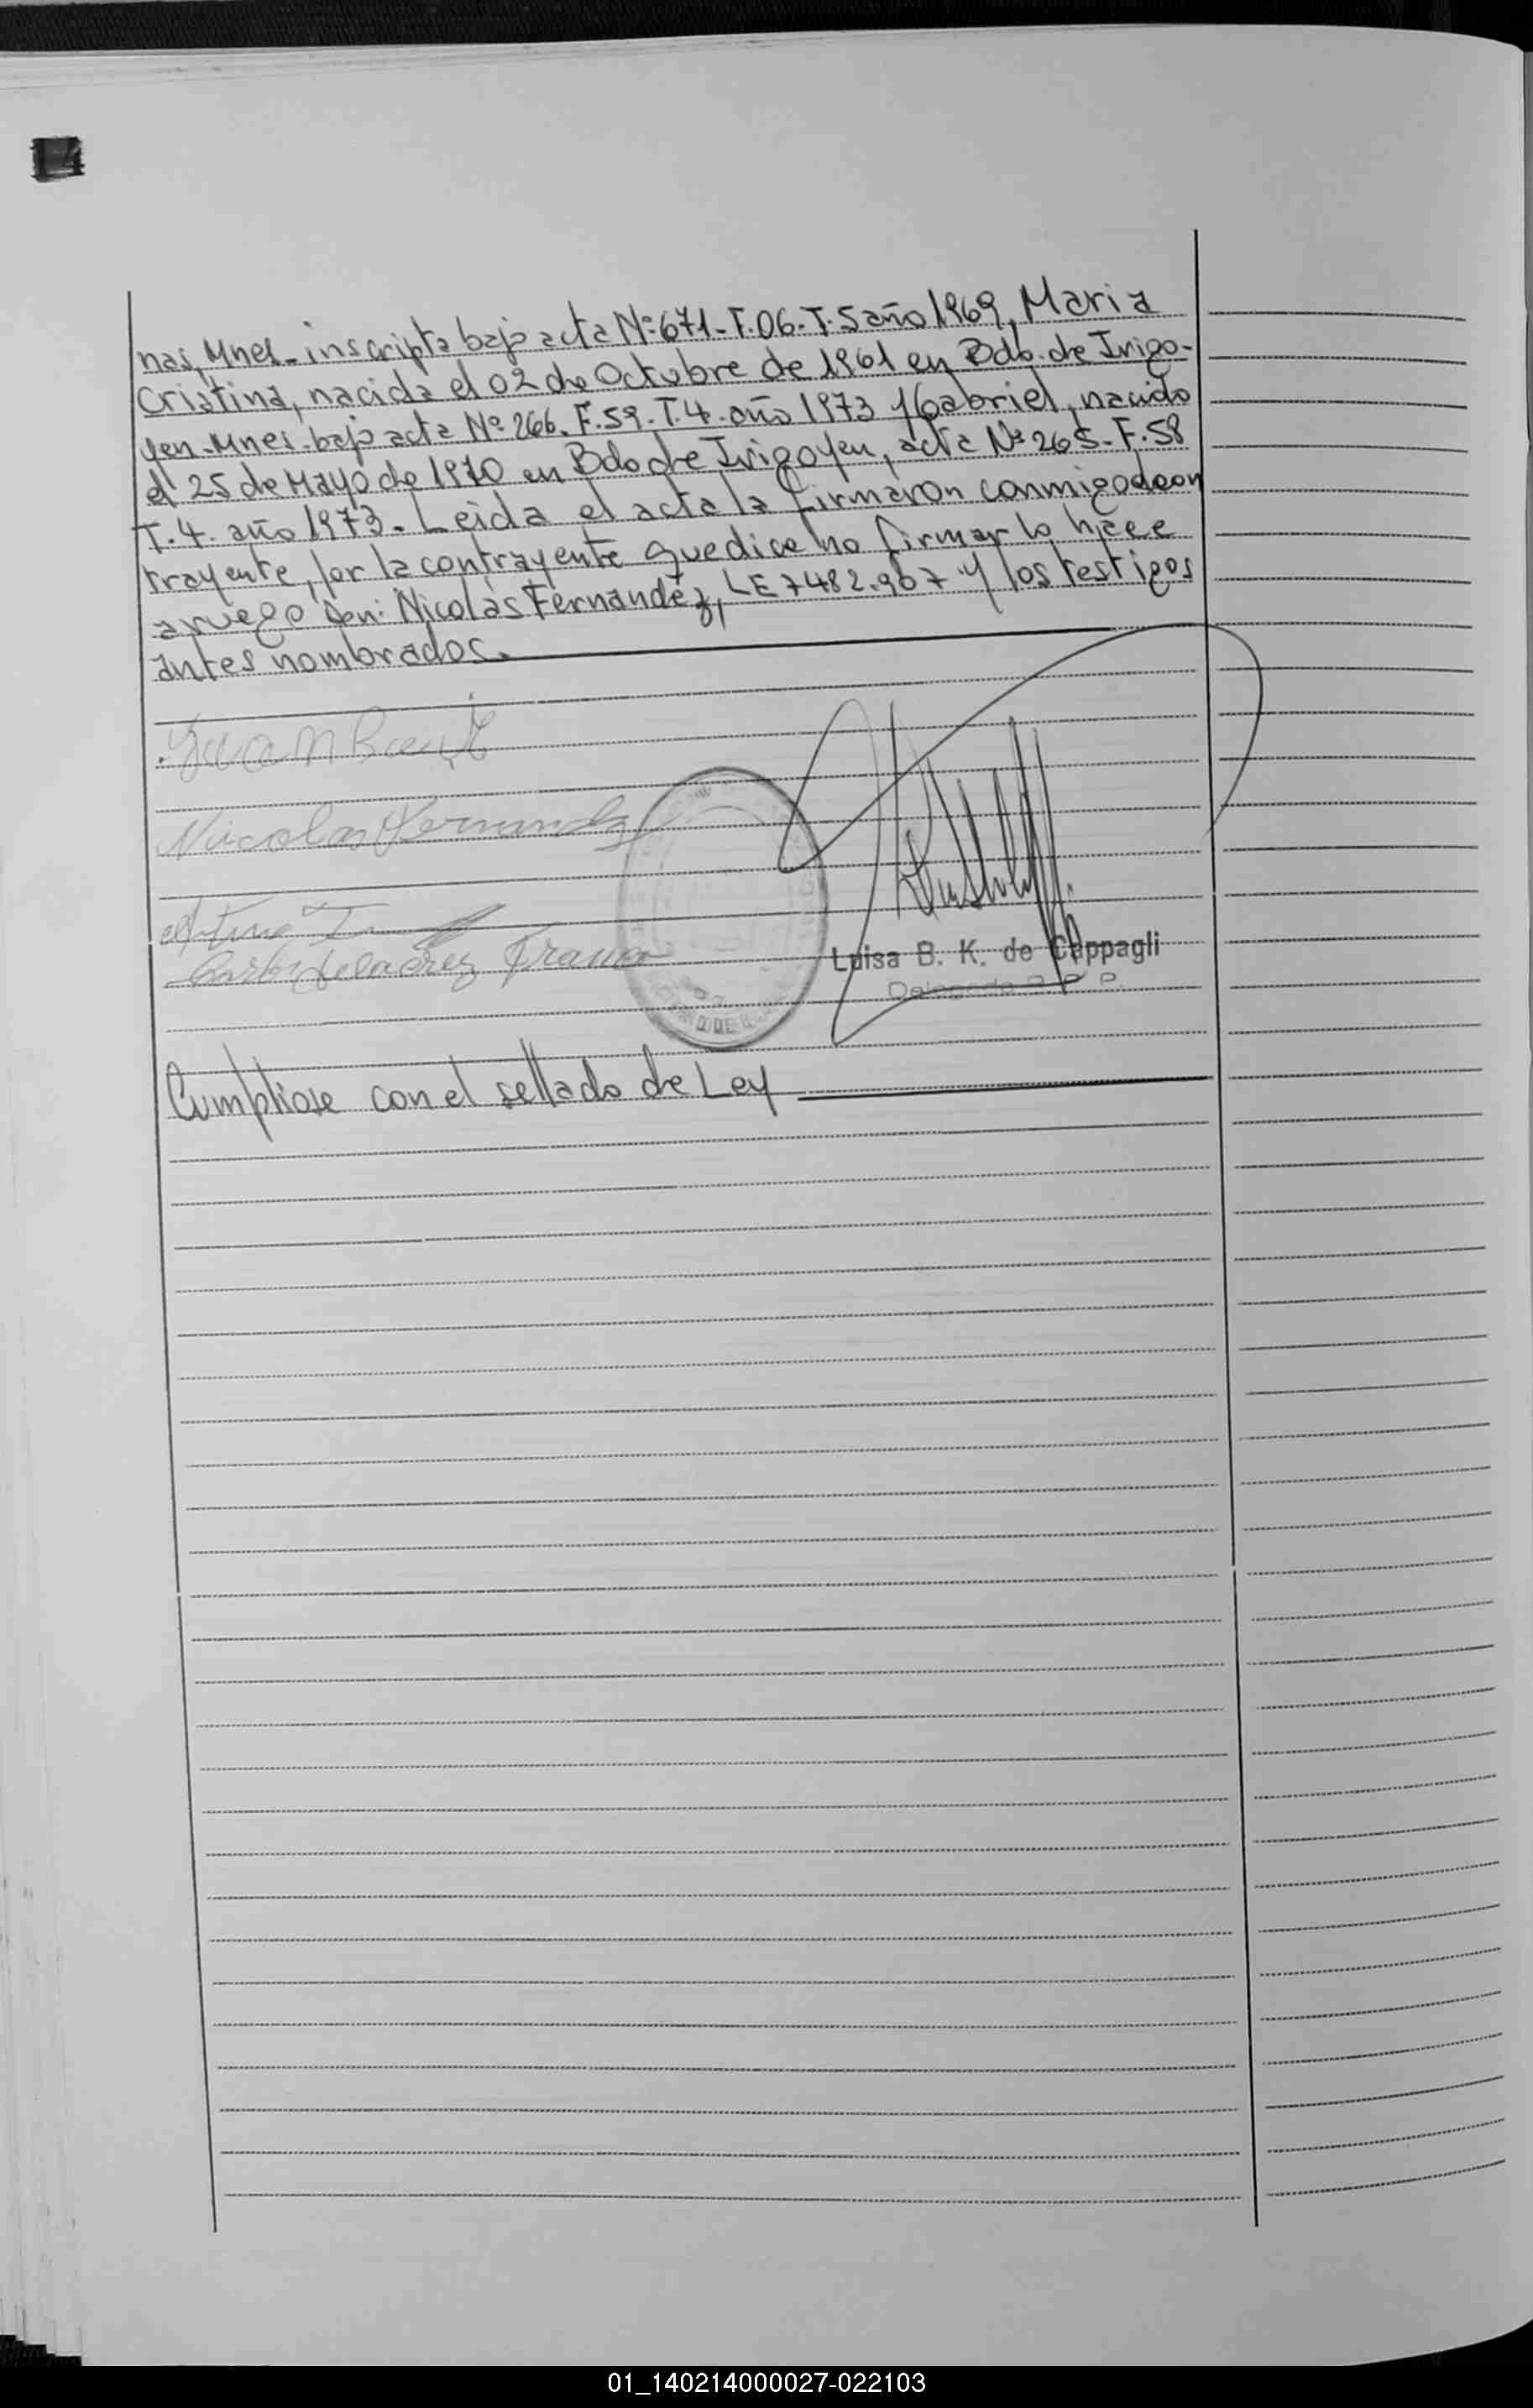 14
nas, Mnes- inscripta bajo acta Nº 671- F.06- T.5 año 1969, Maria
Cristina, nacida el 02 de Octubre de 1961 en Bdo. de Irigo-
yen- Mnes- bajo acta Nº 266. F.59. T.4. año 1973 y Gabriel, nacido
el 25 de Mayo de 1970 en Bdo de Irigoyen, acta Nº 265- F.58
T.4. año 1973- Leida el acta la firmaron conmigo el con
trayente, por la contrayente que dice no firmar lo hace
a ruego Don: Nicolás Fernandez, LE 7482.967 y los testigos
antes nombrados.
Juan
Nicolas Fernandez
Franco
Luisa B. K. de Cappagli
Delegada
Cumpliose con el sellado de Ley
01_140214000027-022103